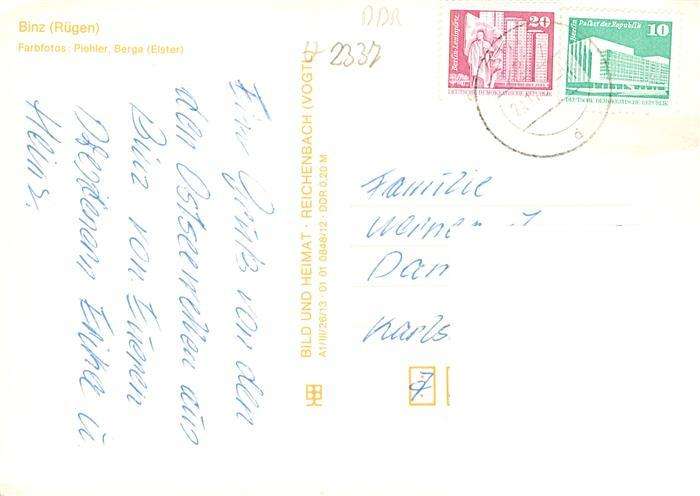 Binz (Rügen)
Farbfotos: Piehler, Berga (Elster)
DDR
2337
Berlin-Leninplatz
20
DEUTSCHE DEMOKRATISCHE REPUBLIK
Berlin Palast der Republik
10
DEUTSCHE DEMOKRATISCHE REPUBLIK
Einen Gruß von den
den Ostseewellen aus
Binz von Euren
u.
Heinz.
BILD UND HEIMAT · REICHENBACH (VOGTL)
A1/III/26/13 · 01 01 0848/12 · DDR 0,20 M
Familie
Werner
Dan
Karls